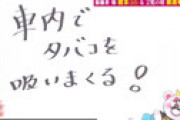 車内で
タバコを
吸いまくる!